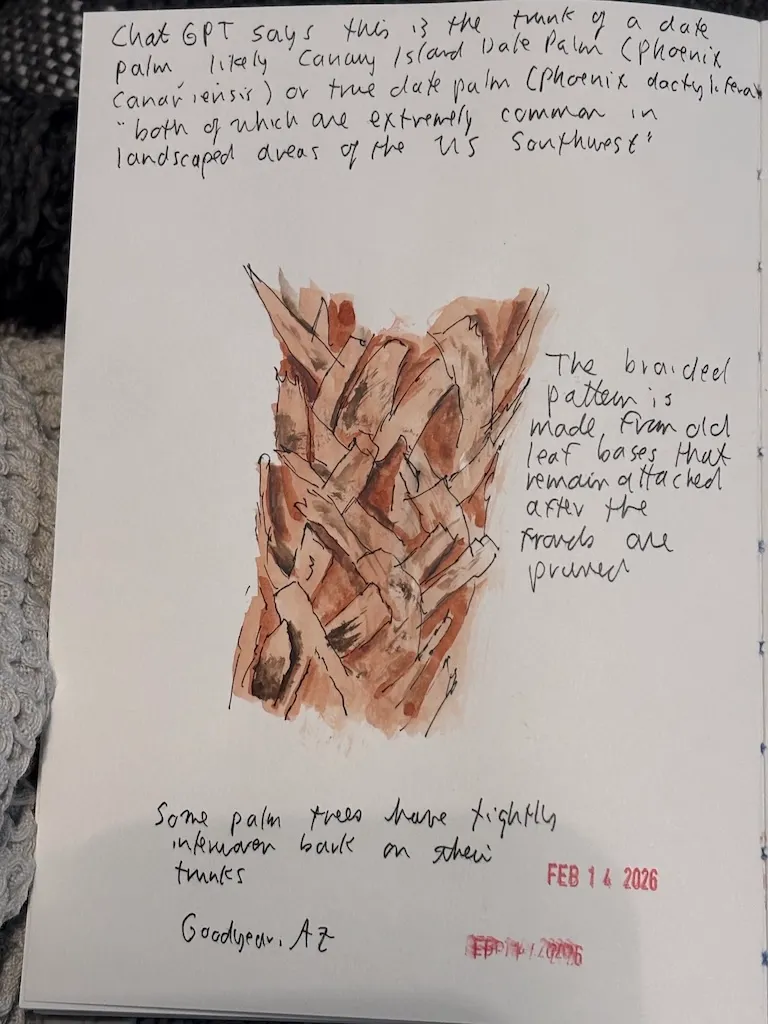 Chat GPT says this is the trunk of a date
palm likely Canary Island Date Palm (phoenix
canariensis) or true date palm (phoenix dactylifera)
"both of which are extremely common in
landscaped areas of the US Southwest"
The braided
pattern is
made from old
leaf bases that
remain attached
after the
fronds are
pruned
Some palm trees have tightly
interwoven bark on their
trunks
FEB 14 2026
Goodyear, AZ